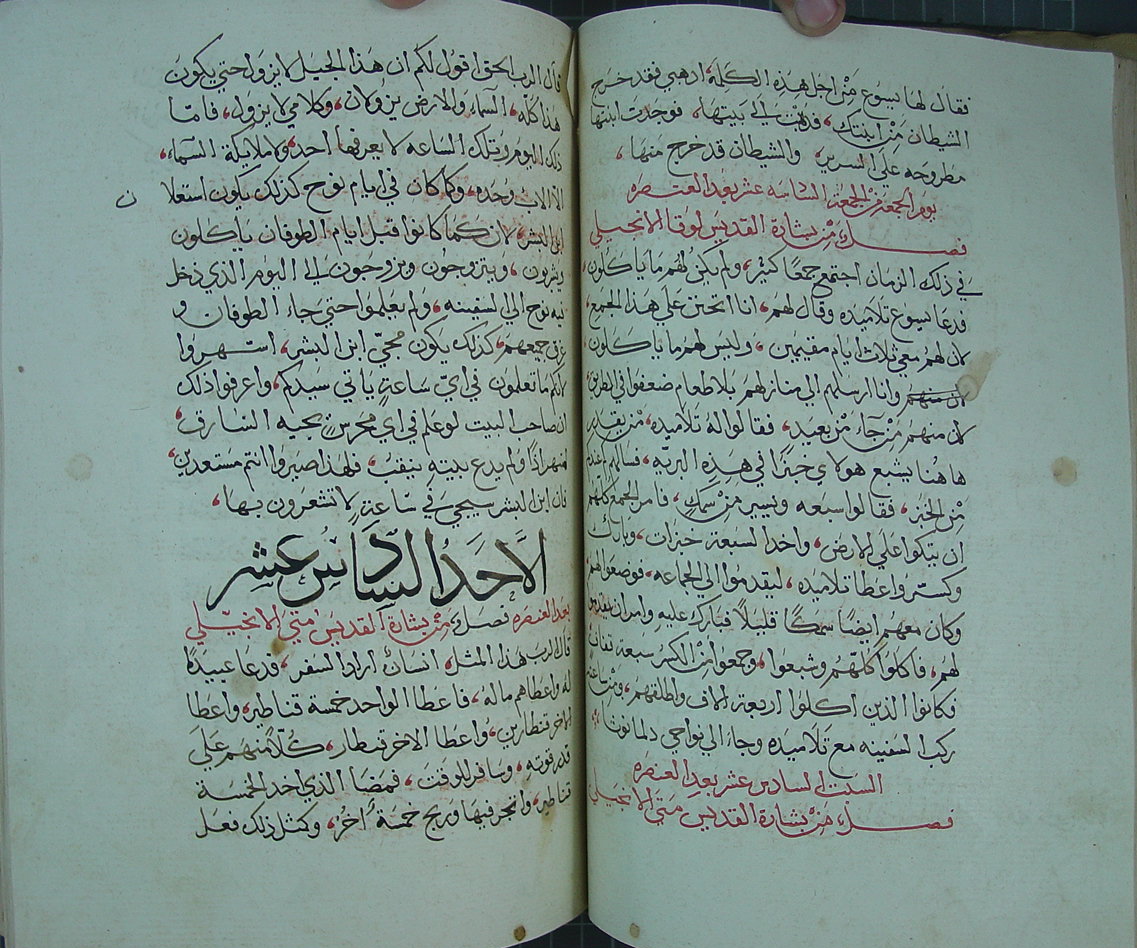 فقال لها يسوع مَنْ اجل هذه الكلمة، ارهبي فقد خرج
الشيطان مِنْ ابنتكِ، فذهبت الي بَيتها، فوجدت ابنتها
مطروحه علي السرير، والشيطان قد خرج منها،
يوم الجمعه مِنْ الجمعة السادسه عشر بعد العنصره
فصل، مِنْ بشارة القديس لوقا الانجيلي
في ذلك الزمان اجتمع جمعًا كثير، ولم يكن لهم ما ياكلون،
فدعا يسوع تلاميذه وقال لهم، انا اتحنن علي هذا الجمع
لان لهم معي ثلاث ايام مقيمين، وليس لهم ما ياكلون،
وانا ارسلهم الي منازلهم بلا طعام ضعفوا في الطريق
لان منهم مَنْ جآء مِنْ بعيد، فقالوا له تلاميذه، مَنْ يقدر
هاهنا يشبع هولاي خبزًا في هذه البريه، فسالهم كم عندكم
مِنْ الخبز، فقالوا سبعه ويسير مِنْ سمك، فامر الجمع كلهم
ان يتكوا علي الارض، واخذ السبعة خبزات، وبارك
وكسر واعطا تلاميذه، ليقدموا الي الجماعه، فوضعوا لهم
وكان معهم ايضًا سمكًا قليلاً فبارك عليه وامر ان يقدم
لهم، فاكلوا كلهم وشبعوا، وجمعوا مِنْ الكسر سبعة قفاف
فكانوا الذين اكلوا اربعة الاف واطلقهم، ومن ساعته
ركب السفينه مع تلاميذه وجاء الي نواحي دلمانوثا،
السبت السادس عشر بعد العنصره
فصل، مِنْ بشارة القديس متي الانجيلي
قال الرب الحق اقول لكم ان هذا الجيل لا يزول حتي يكون
هذا كله، السمآء والارض يزولان، وكلامي لا يزول، فامّا
ذلك اليوم وتلك الساعه لا يعرفها احد، ولا ملايكة السمآء،
الا الاب وحده، وكما كان في ايام نوح كذلك يكون استعلان
ابن البشر، لان كما كانوا قبل ايام الطوفان ياكلون
ويشربون، ويتزوجون ويزوجون الي اليوم الذي دخل
فيه نوح الي السفينه، ولم يعلموا حتي جاء الطوفان و
غرق جميعهم، كذلك يكون مجيّ ابن البشر، اسهروا
لانكم ما تعلمون في ايّ ساعةٍ ياتي سيدكم، واعرفوا ذلك
ان صاحب البيت لو علم في اي محرسٍ يجيه السارق،
لسهر اذًا ولم يدع بيته ينقب، فلهذا صيروا انتم مستعدين،
فان ابن البشر سيجي في ساعةٍ لا تشعرون بها،
الاحد السادس عشر
بعد العنصره فصل، مِنْ بشارة القديس متي الانجيلي
قال الرب هذا المثل، انسان اراد السفر، فدعا عبيدهُ
لهُ واعطاهم مالهُ، فاعطا الواحد خمسة قناطير، واعطا
الاخر قنطارين، واعطا الاخر قنطار، كلاً منهم علي
قدر قوته، وسافر للوقت، فمضا الذي اخد الخمسة
قناطير، واتجر فيها وربح خمسة اُخرُ، وكمثل ذلك فعل